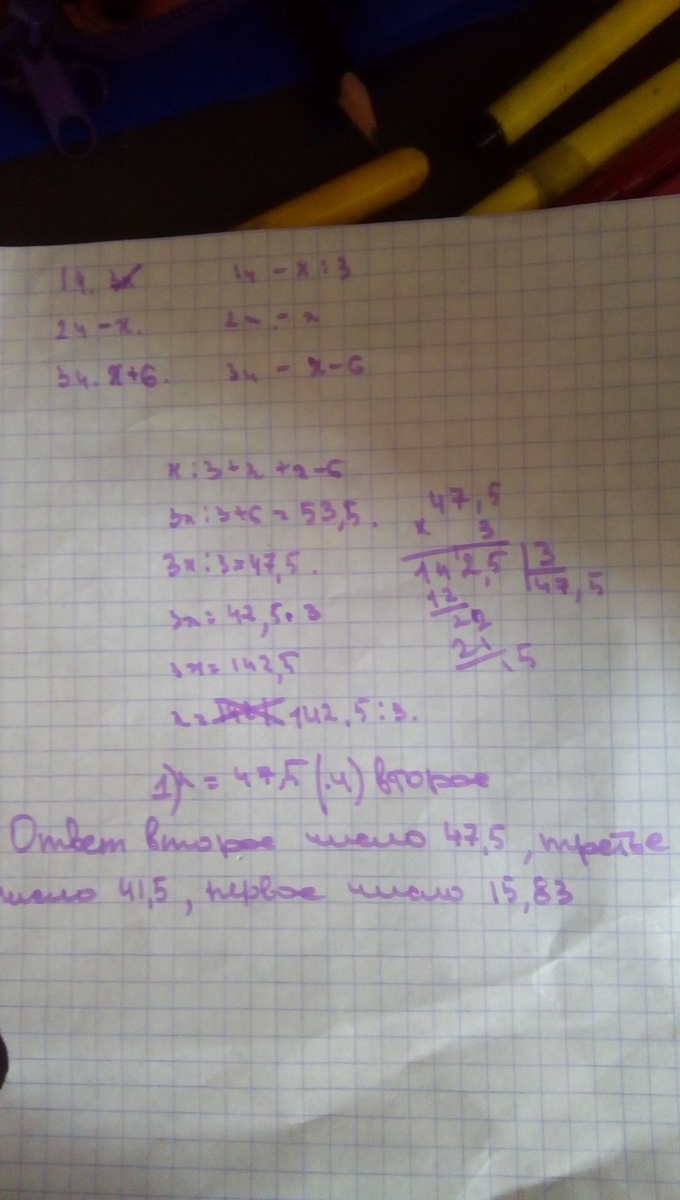 1ч. 3x
2ч - x.
3ч. x+6.
1ч - x : 3
2ч - x
3ч - x-6
x : 3 + x + x - 6
3x : 3 + 6 = 53,5.
3x : 3 = 47,5.
3x = 47,5 · 3
3x = 142,5
x = 142,5 : 3.
47,5
x 3
142,5 3
12 47,5
22
21
5
1) x = 47,5 (.ч) второе
Ответ второе число 47,5, третье
число 41,5, первое число 15,83